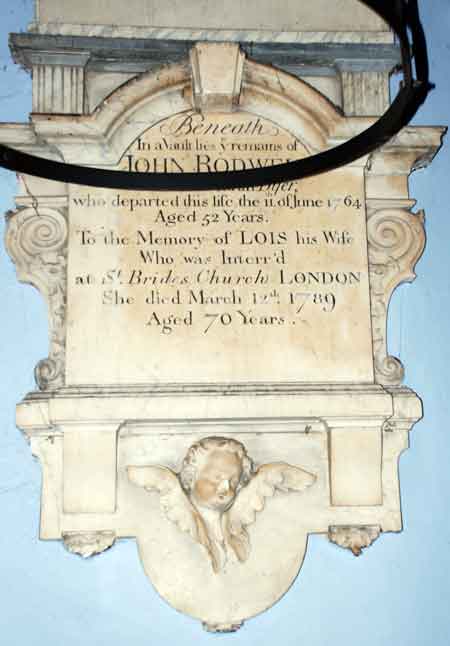 Beneath
In a Vault lies yͤ remains of
JOHN
who departed this life the 11.th of June 1764
Aged 52 Years.
To the Memory of LOIS his Wife
Who was Interr'd
at St. Brides Church LONDON
She died March 12th. 1789
Aged 70 Years.